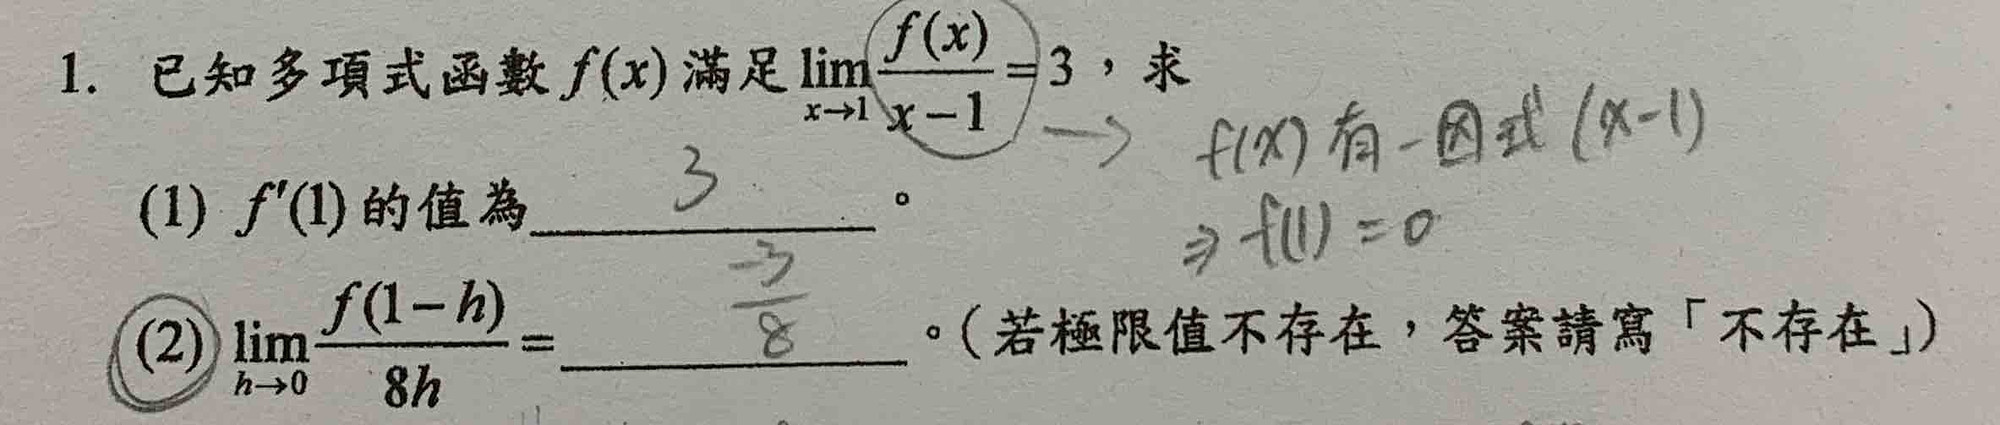 1. 已知多項式函數 f(x) 滿足 lim_{x→1} f(x)/(x-1) = 3，求
→ f(x) 有一因式 (x-1)
(1) f'(1) 的值為 3 。
⇒ f(1) = 0
(2) lim_{h→0} f(1-h)/8h = -3/8 。(若極限值不存在，答案請寫「不存在」)